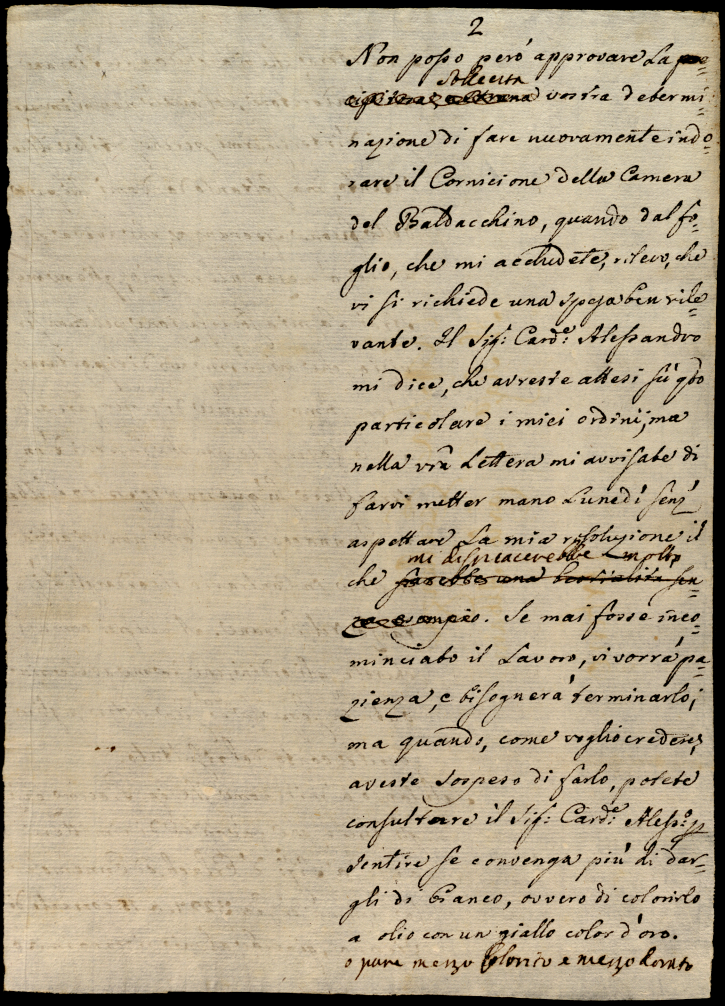 2
Non posso però approvare La pre=
sollecita
cipitosa, e strana vostra determi=
nazione di fare nuovamente indo=
rare il Cornicione della Camera
del Baldacchino, quando dal fo=
glio, che mi accludete, rilevo, che
vi si richiede una spesa ben rile=
vante. Il Sig.r Card.e Alessandro
mi dice, che avreste attesi sù q̃to
particolare i miei ordini, ma
nella vr̃a Lettera mi avvisate di
farvi metter mano Lunedì senz'
aspettare La mia risoluzione il
mi dispiacerebbe molto
che sarebbe una bestialità sen
za esempio. Se mai fosse inco=
minciato il Lavoro, vi vorrà pa=
zienza, e bisognerà terminarlo;
ma quando, come voglio credere,
aveste sospeso di farlo, potete
consultare il Sig.r Card.e Aless.o p
sentire se convenga più di dar=
gli di bianco, ovvero di colorirlo
a olio con un giallo color d'oro.
o pure mezzo colorito e mezzo dorato